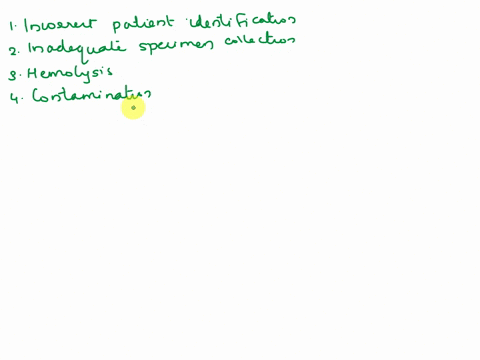 1. Incorrect patient identification
2. Inadequate specimen collection
3. Hemolysis
4. Contamination